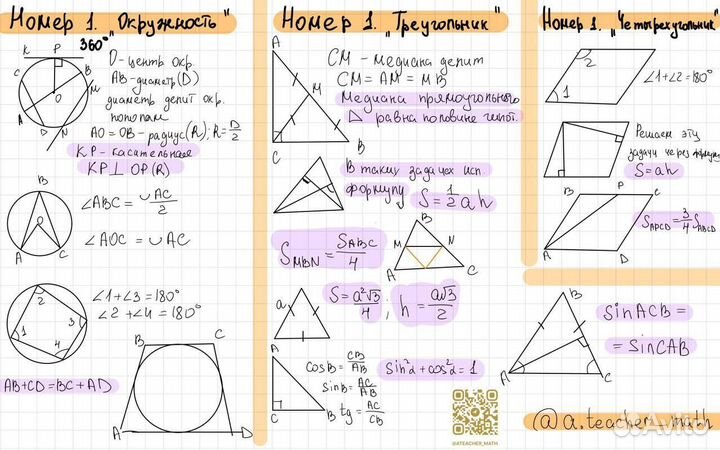 Номер 1. "Окружность"
360°
K P
C B M O A D N
O - центр окр.
AB - диаметр (D)
диаметр делит окр.
пополам
AO = OB - радиус (R); R = D/2
KP - касательная
KP ⊥ OP (R)
B
O
A C
∠ABC = ∪AC/2
∠AOC = ∪AC
2
1 3
4
∠1 + ∠3 = 180°
∠2 + ∠4 = 180°
B C
AB + CD = BC + AD
A D
Номер 1. "Треугольник"
A
M
C B
CM - медиана делит
CM = AM = MB
Медиана прямоугольного
△ равна половине гипот.
В таких задачах исп.
формулу S = 1/2 a h
S MBN = S ABC/4
B
M N
A C
a
S = a²√3/4 ; h = a√3/2
A
C B
cosB = CB/AB
sinB = AC/AB
tg = AC/CB
sin²α + cos²α = 1
@ATEACHER_MATH
Номер 1. "Четырехугольник"
2
1
∠1 + ∠2 = 180°
Решаем эту
задачу через
S = ah
B P C
A D
S APCD = 3/4 S ABCD
B
A C
sin ACB =
= sin CAB
@a.teacher_math
Avito